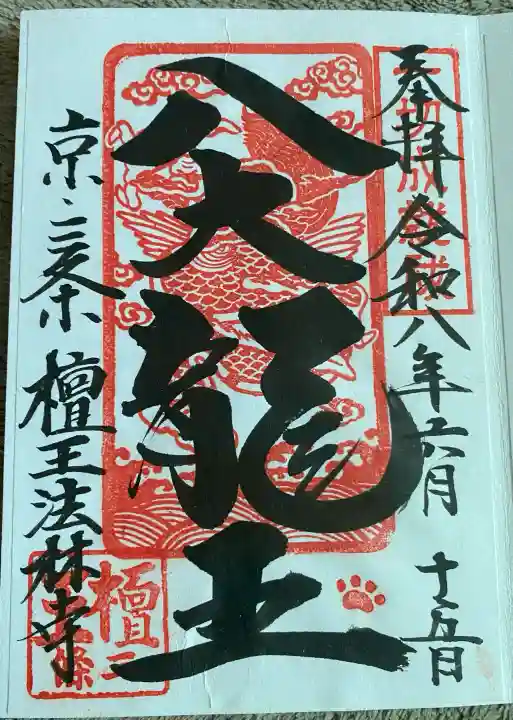 奉拝 令和八年六月十五日
八大龍王
京・三条 檀王法林寺